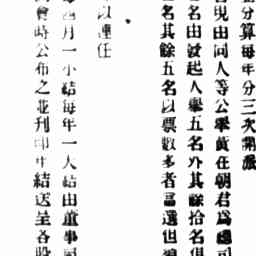 分算每年分三次開派
由同人等公舉黃任朝君爲總司
名由發起人舉五名外其餘拾名俱
名其餘五名以票數多者當選但
以連任
四月一小結每年一大結由董事
會時公布之並刊印中結送呈各股